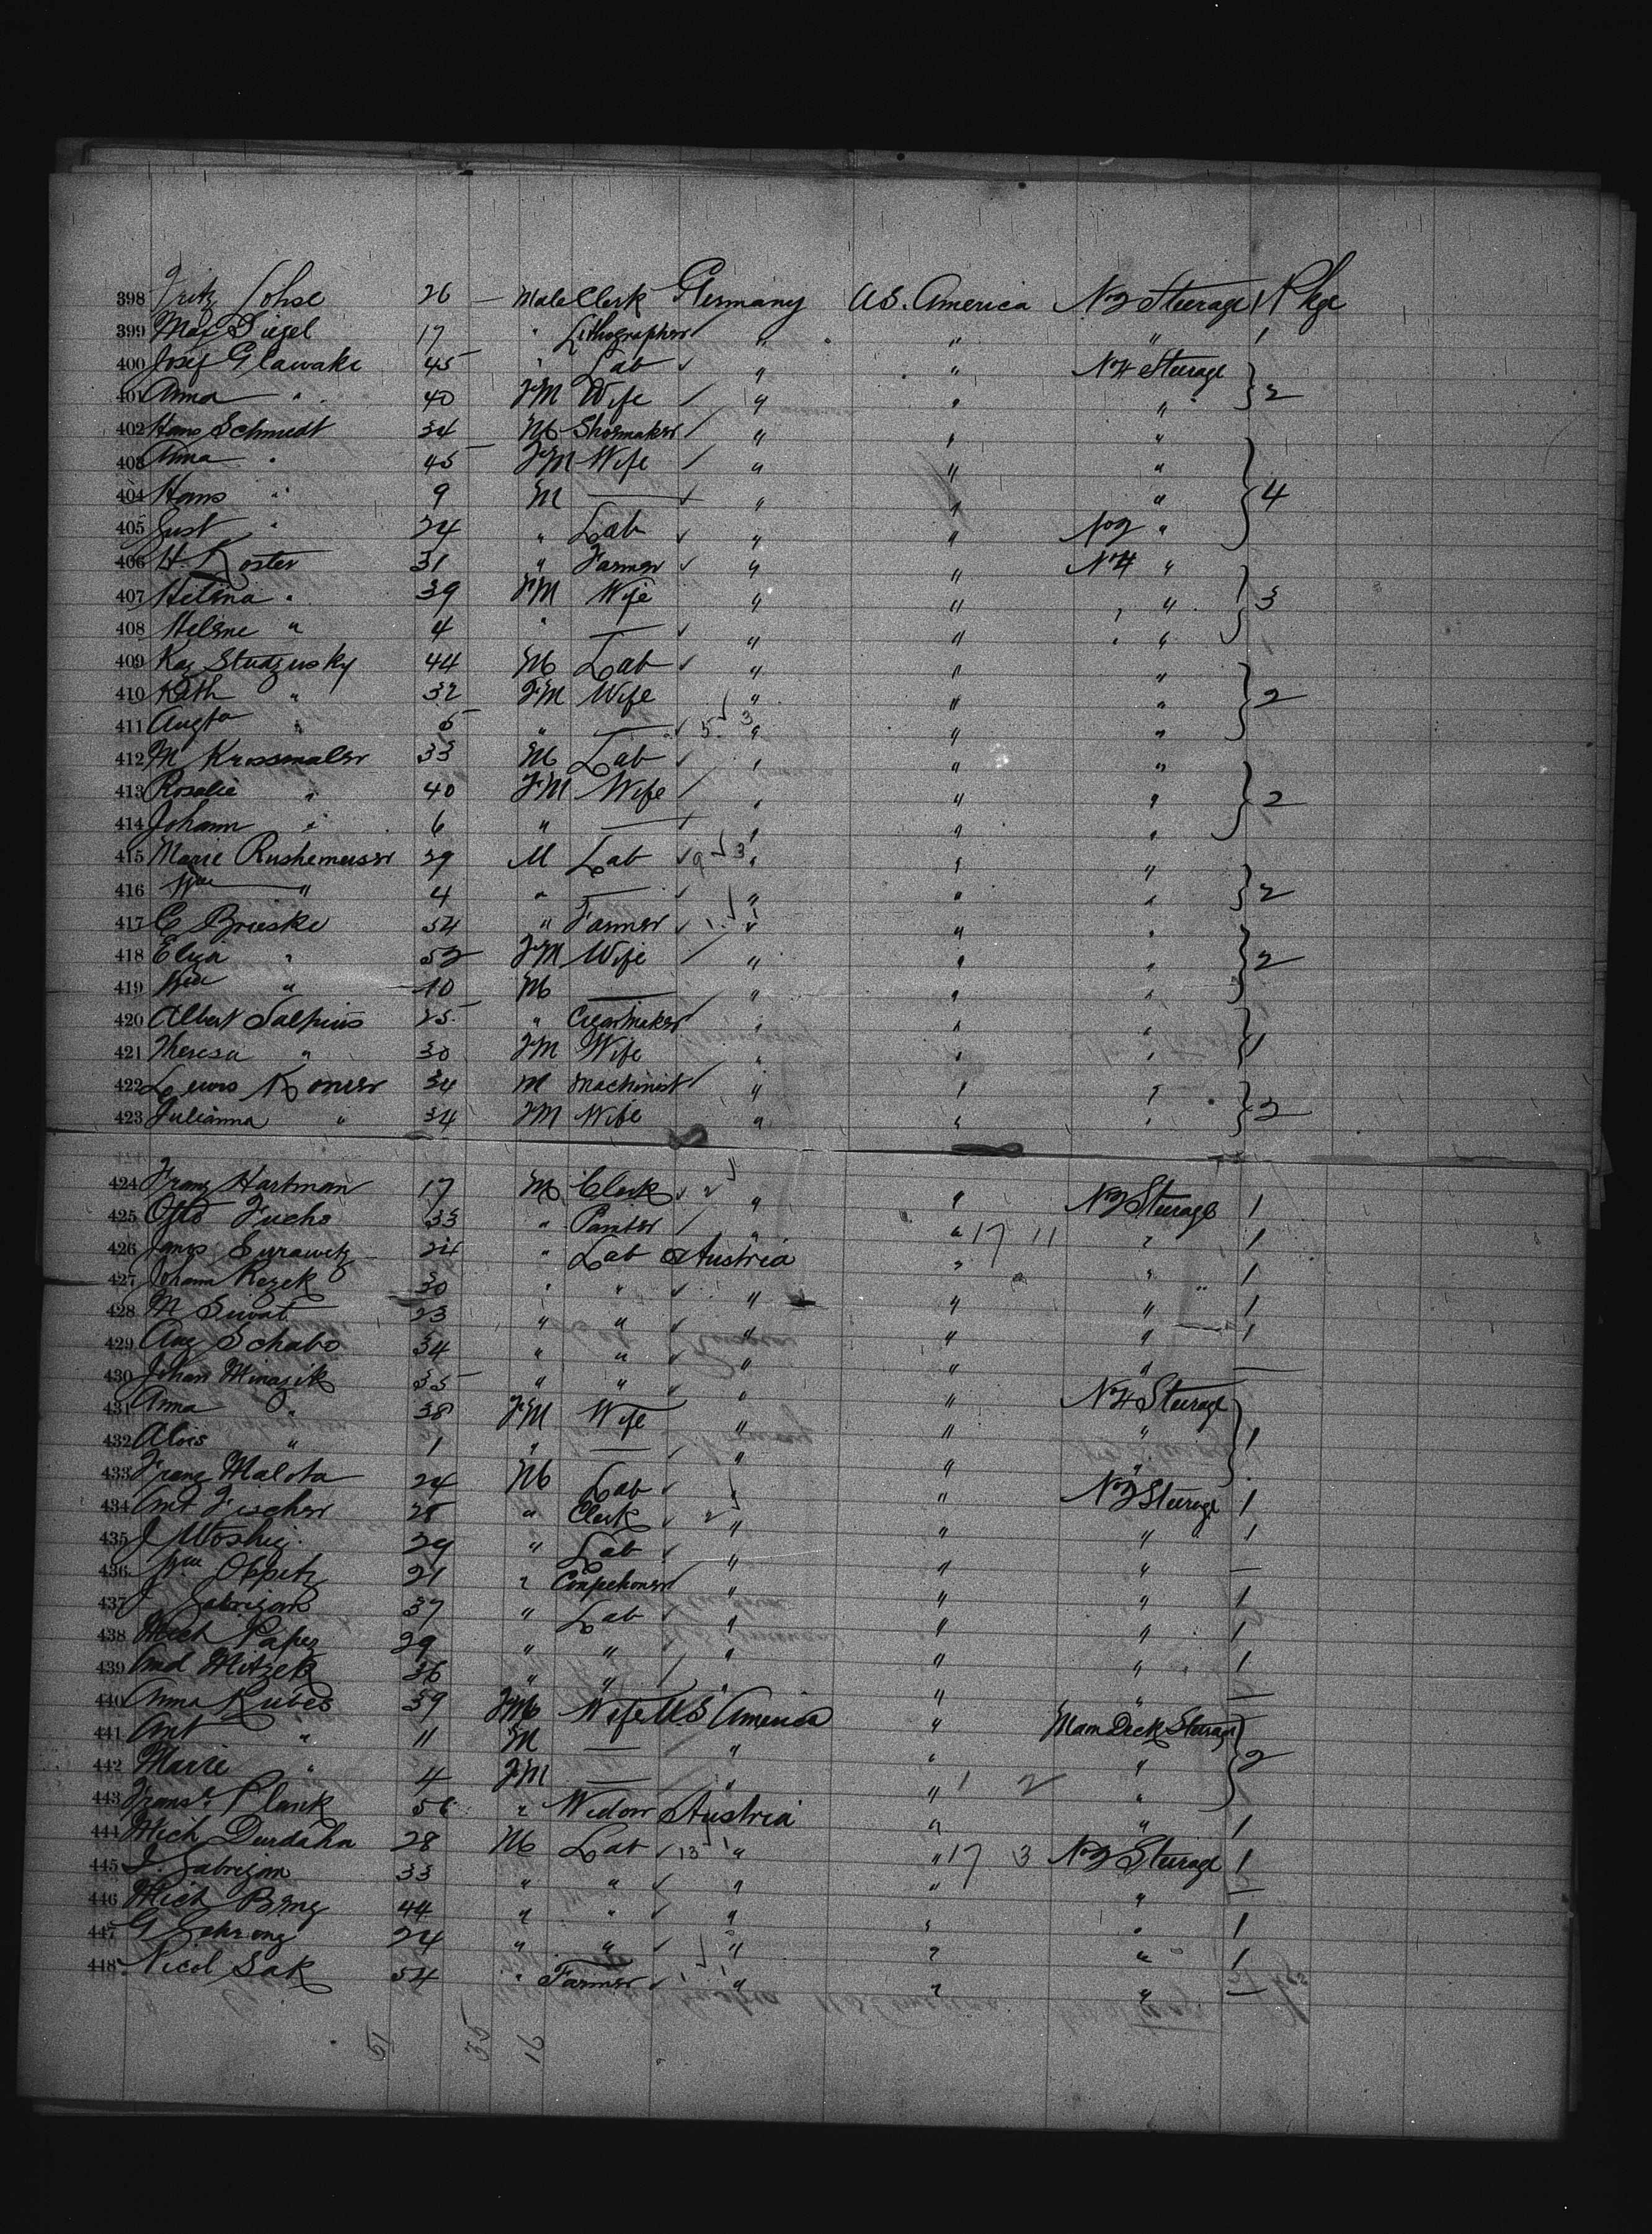 398 Fritz Lohse 26 — Male Clerk Germany U.S. America No 2 Steerage 1 Pkge
399 Max Siegel 17 " Lithographer " " " 1
400 Josef Glawake 45 " Lab " " No 4 Steerage
401 Anna " 40 FM Wife " " " 2
402 Hans Schmidt 34 M Shoemaker " " "
403 Anna " 45 FM Wife " " "
404 Hans " 9 M — " " " 4
405 Gust " 24 " Lab " " No 2 "
406 H. Koster 31 " Farmer " " No 4 "
407 Helena " 39 FM Wife " " " " 3
408 Helene " 4 " — " " " "
409 Kaz Studzusky 44 M Lab " " "
410 Kath " 32 FM Wife " " " 2
411 Augta " 5 " — 5 3 " " "
412 M Krossmaler 33 M Lab " " "
413 Rosalie " 40 FM Wife " " " 2
414 Johann " 6 " — " " "
415 Marie 29 M Lab 9 3 " " "
416 Wm " 4 " — " " " 2
417 C Brieske 54 " Farmer 1 1 " " "
418 Eliza " 52 FM Wife " " " 2
419 " 10 M — " " "
420 Albert Salpius 25 " Cigarmaker " " "
421 Theresa " 30 FM Wife " " " 1
422 Lewis Komer 34 M Machinist " " "
423 Julianna " 34 FM Wife " " " 2
424 Franz Hartman 17 M Clerk 2 " " No 2 Steerage 1
425 Otto Fuchs 33 " Painter " " 17 11 " 1
426 Surawitz 24 " Lab Austria " " 1
427 Johann Rezek 30 " " " " " 1
428 M Siwat 23 " " " " " 1
429 Aug Schabo 34 " " " " " —
430 Johan Minazik 35 " " " " No 4 Steerage
431 Anna " 38 FM Wife " " " 1
432 Alois " 1 " — " " "
433 Franz Malota 24 M Lab " " No 2 Steerage 1
434 Ant Fischer 28 " Clerk 2 " " " 1
435 J 29 " Lab " " " —
436 Wm Oppitz 21 " Confectioner " " " 1
437 J Gabrizan 37 " Lab " " " 1
438 Mich Papez 29 " " " " " 1
439 And Mitzek 36 " " " " " —
440 Anna Kubes 39 FM Wife U.S America " Main Deck Steerage
441 Ant " 11 M — " " " 2
442 Marie " 4 FM — " " 1 2 "
443 Plank 56 " Widow Austria " " 1
444 Mich Durdaha 28 M Lab 13 1 " " 17 3 No 2 Steerage 1
445 J. Gabrizan 33 " " " " " —
446 Mich 44 " " " " " 1
447 G 24 " " " " " 1
448 Nicol Sak 54 " Farmer 1 1 " " " —
51 35 16